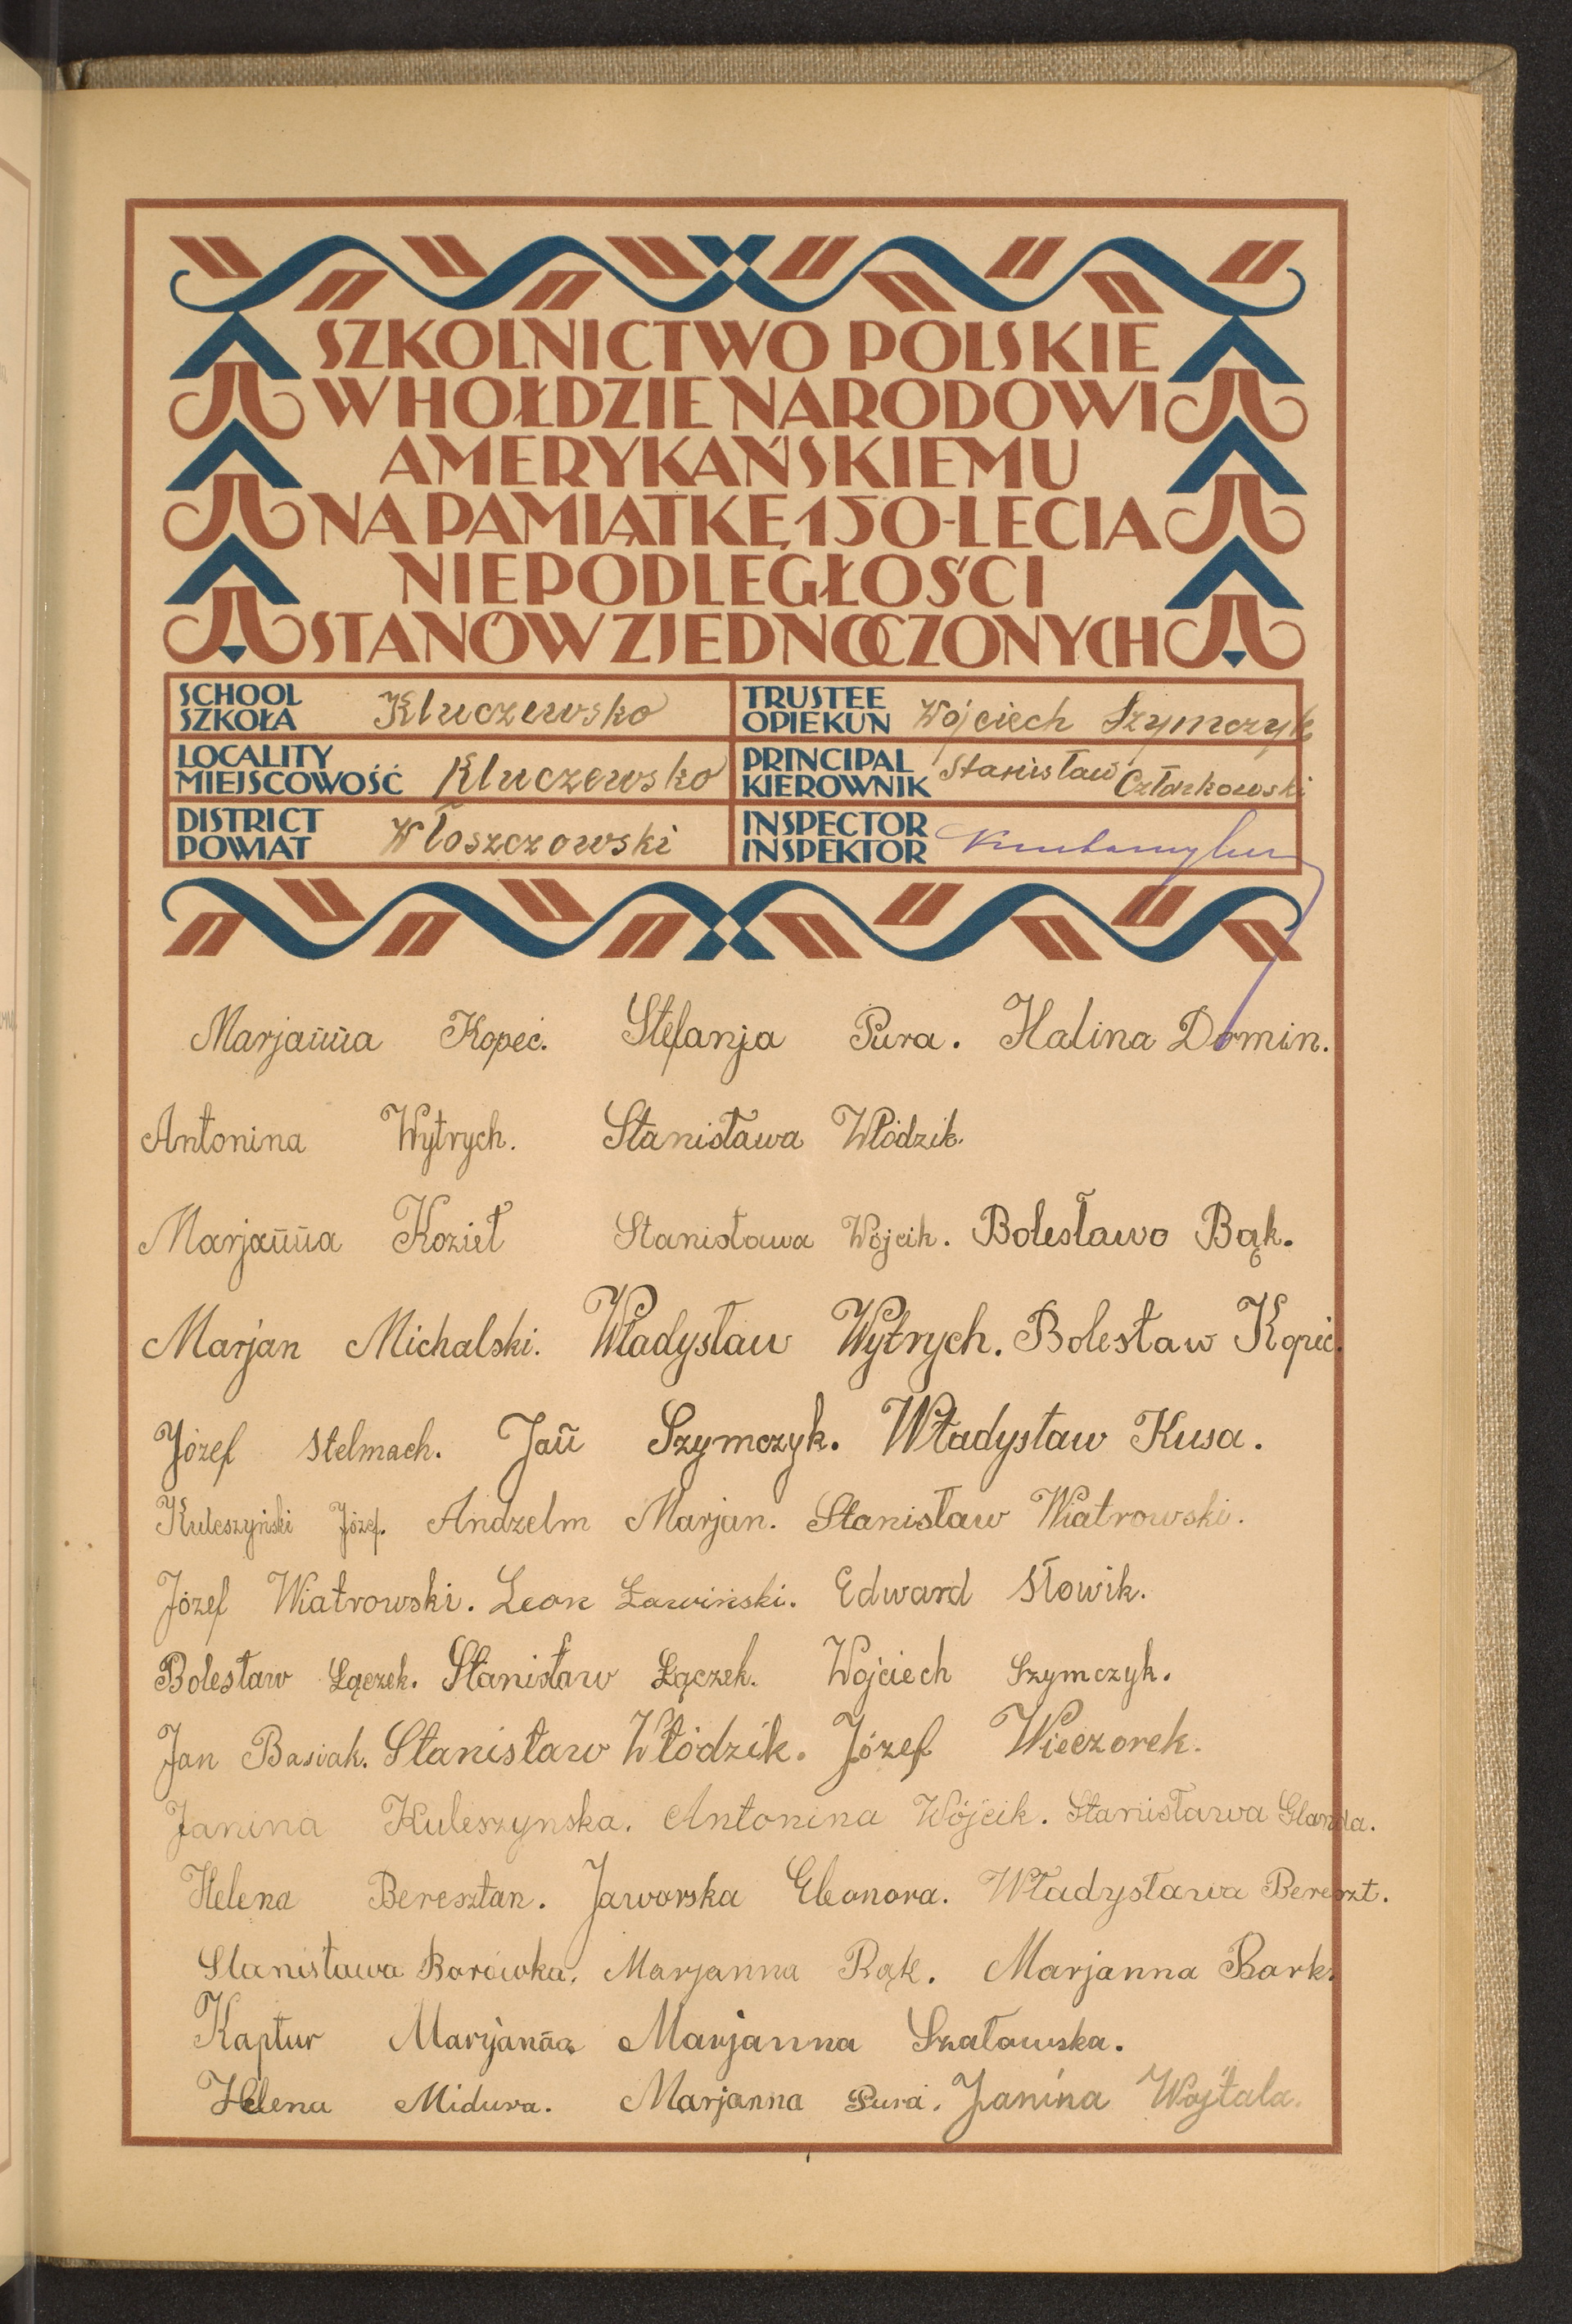 SZKOLNICTWO POLSKIE
W HOŁDZIE NARODOWI
AMERYKAŃSKIEMU
NA PAMIĄTKĘ 150-LECIA
NIEPODLEGŁOŚCI
STANÓW ZJEDNOCZONYCH
SCHOOL SZKOŁA Kluczewsko
TRUSTEE OPIEKUN Wojciech Szymczyk
LOCALITY MIEJSCOWOŚĆ Kluczewsko
PRINCIPAL KIEROWNIK Stanisław Członkowski
DISTRICT POWIAT Włoszczowski
INSPECTOR INSPEKTOR
Marjanna Kopeć. Stefanja Pura. Halina Domin.
Antonina Wytrych. Stanisława Włódzik.
Marjanna Kozieł Stanisława Wójcik. Bolesława Bąk.
Marjan Michalski. Władysław Wytrych. Bolesław Kopeć.
Józef Stelmach. Jan Szymczyk. Władysław Kusa.
Kuleszyński Józef. Andzelm Marjan. Stanisław Wiatrowski.
Józef Wiatrowski. Leon Ławiński. Edward Słowik.
Bolesław Łączek. Stanisław Łączek. Wojciech Szymczyk.
Jan Basiak. Stanisław Włódzik. Józef Wieczorek.
Janina Kuleszynska. Antonina Wójcik. Stanisława Glanda.
Helena Beresztan. Jaworska Eleonora. Władysława Bereszt.
Stanisława Borówka. Marjanna Bąk. Marjanna Bark.
Kaptur Marjanna Marjanna Szatowska.
Helena Midura. Marjanna Pura. Janina Wojtala.